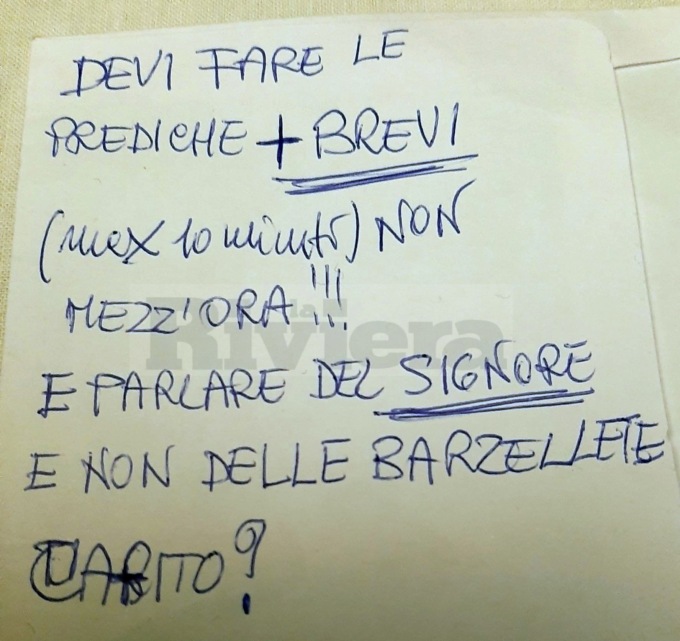 DEVI FARE LE
PREDICHE + BREVI
(max 10 minuti) NON
MEZZ'ORA!!!
la
Riviera
E PARLARE DEL SIGNORE
E NON DELLE BARZELLETE
CAPITO?